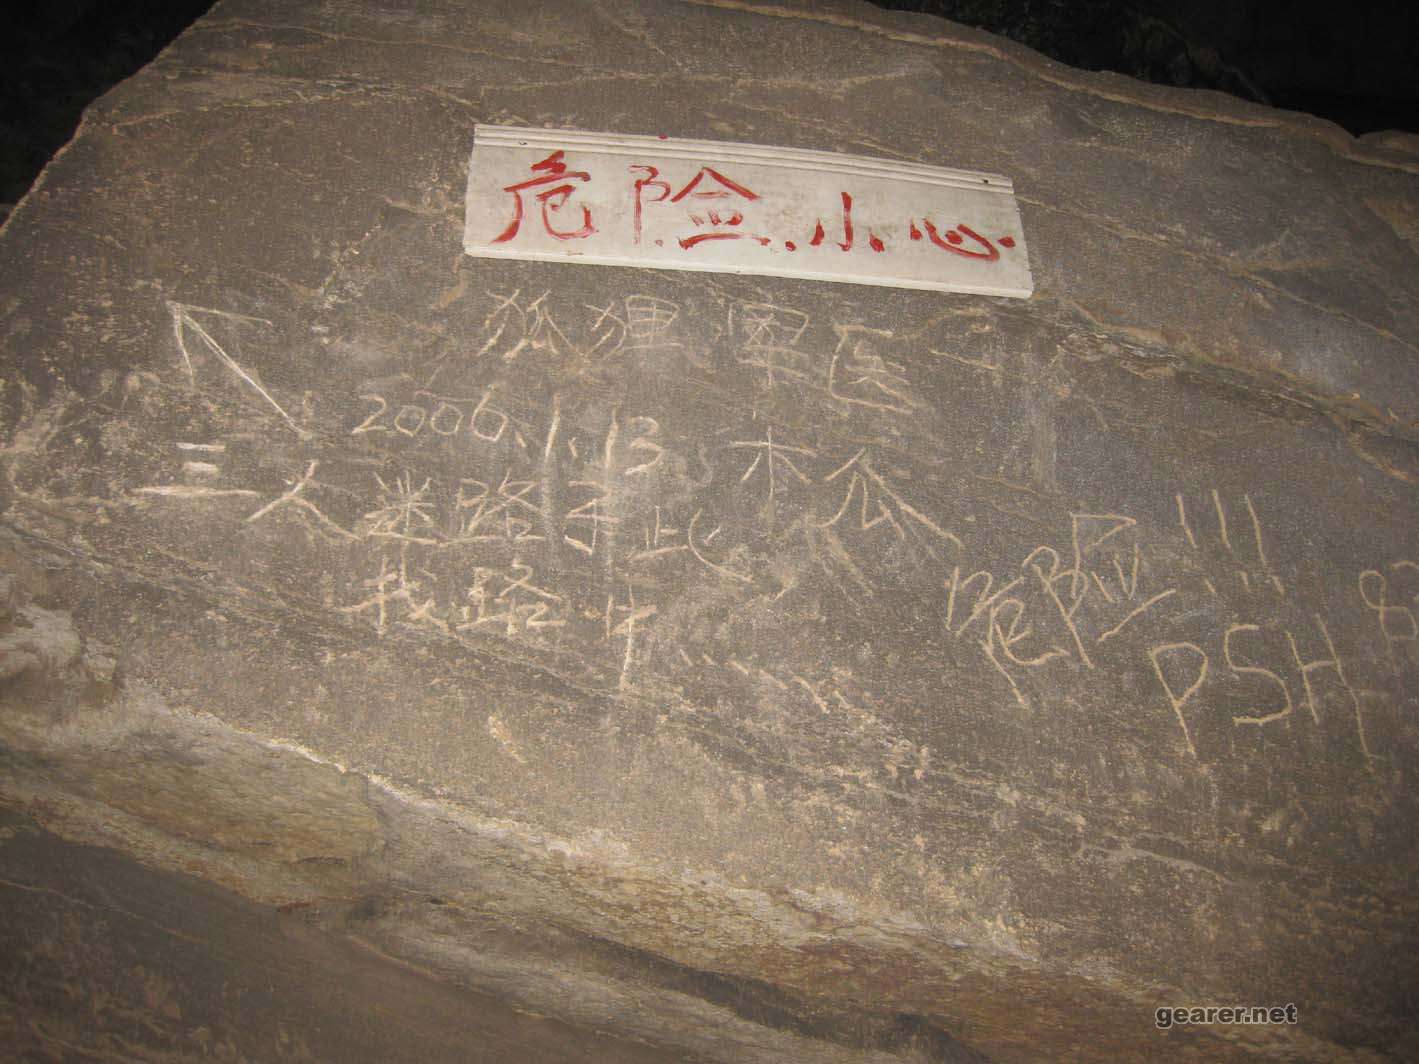 危险.小心
狐狸 军医
2006.1.13 木瓜
三人迷路于此
找路中......
危险!!!
PSH
8
gearer.net